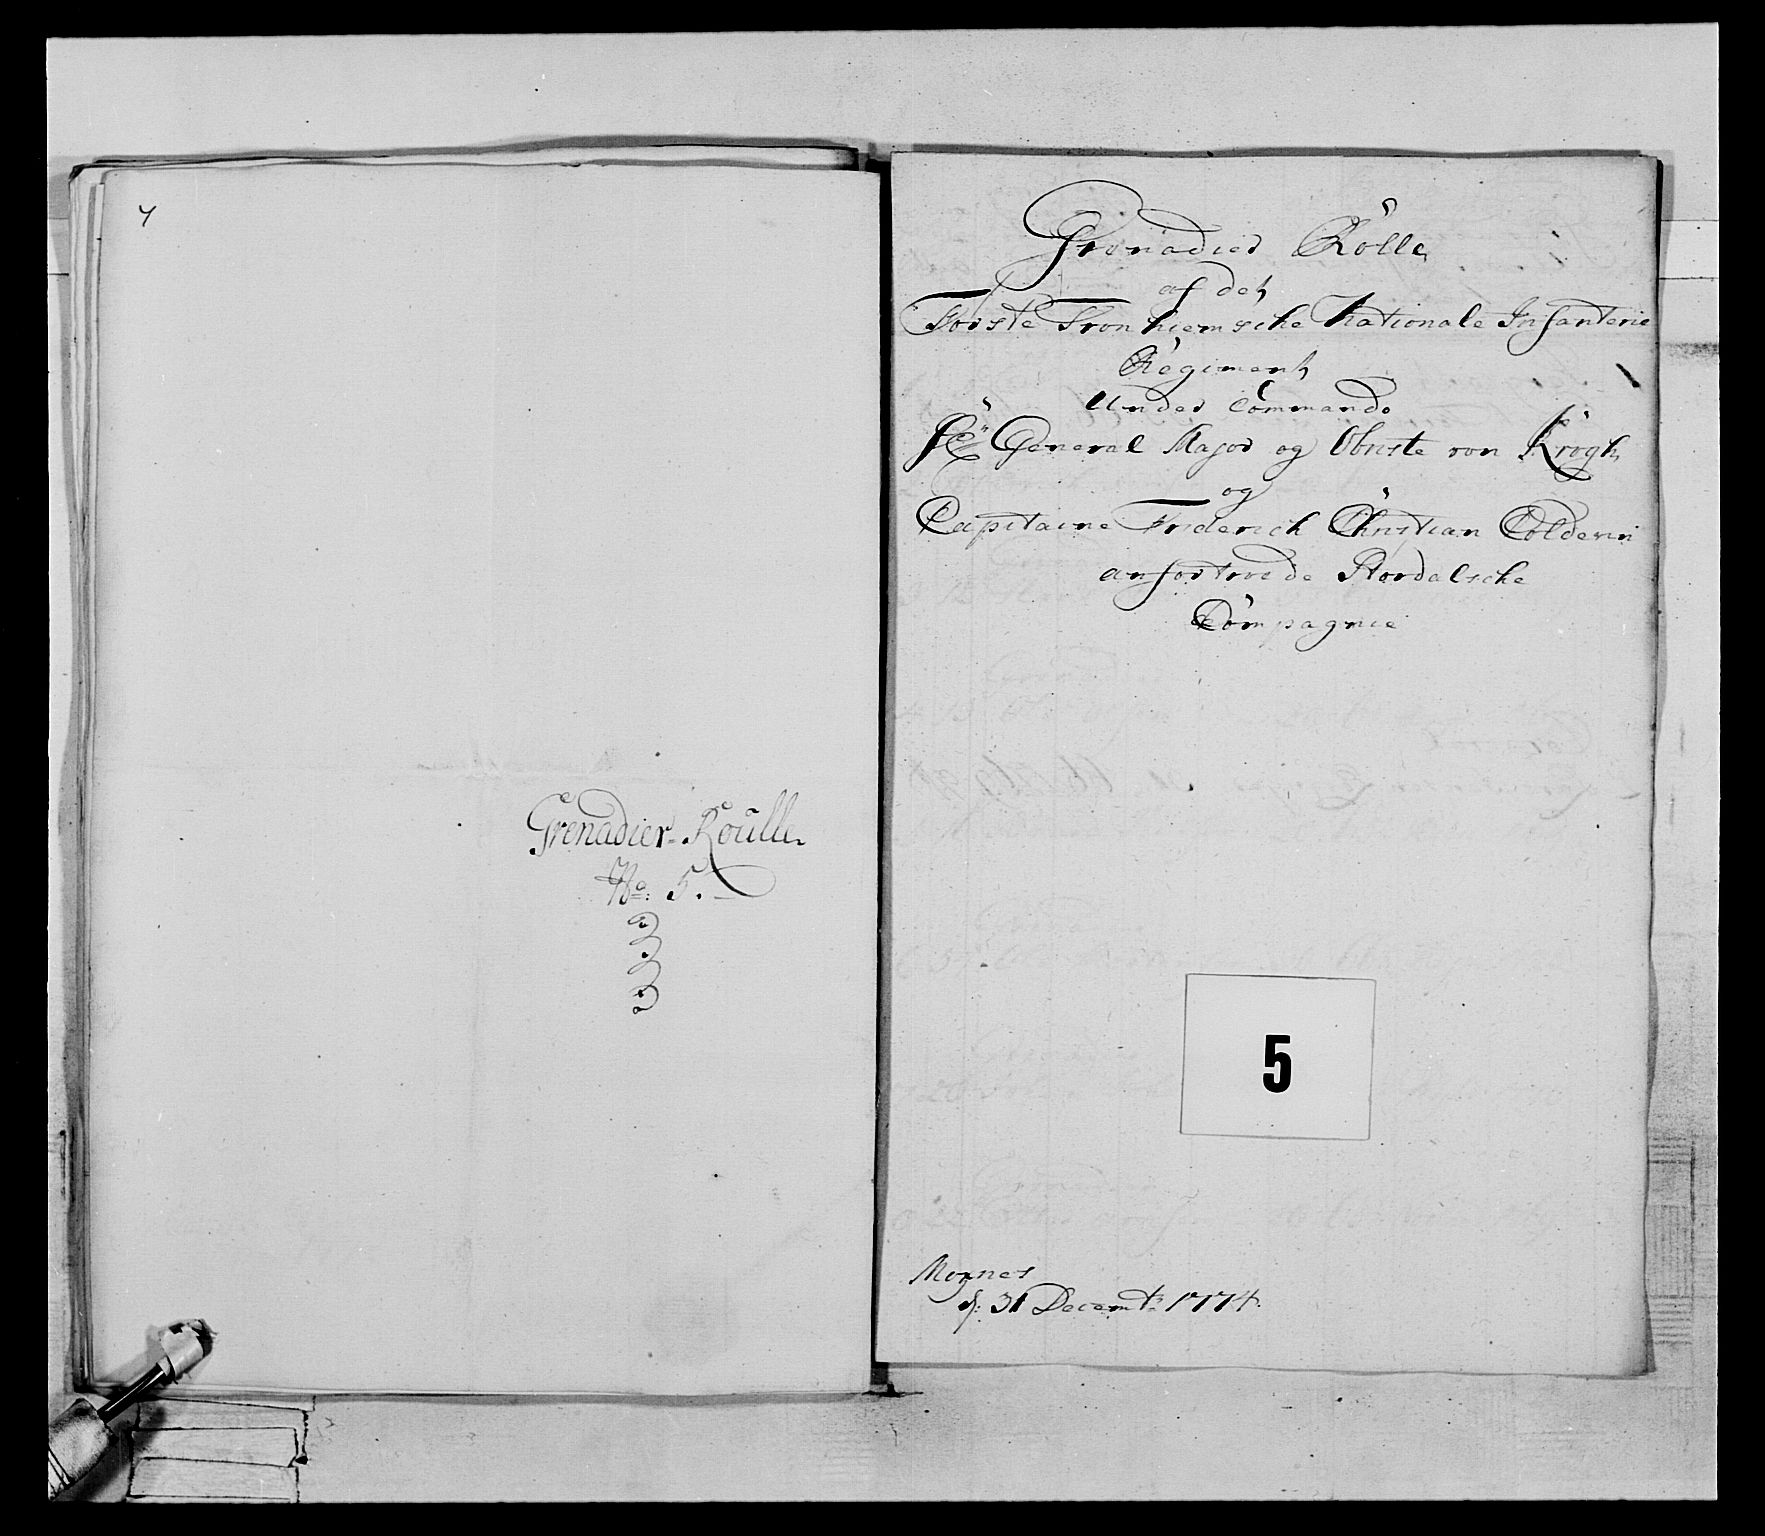 4
Grenadier-Roulle
No: 5.
Grenadier Rolle
af det
Første Tronhiemsche Nationale Infanterie
Regiment
Under Commando
Hr General Major og Obriste von Krogh
og
Capitaine Friderich Christian Coldevin
anfortroede Stordalsche
Compagnie
5
d: 31 Decembr 1774.